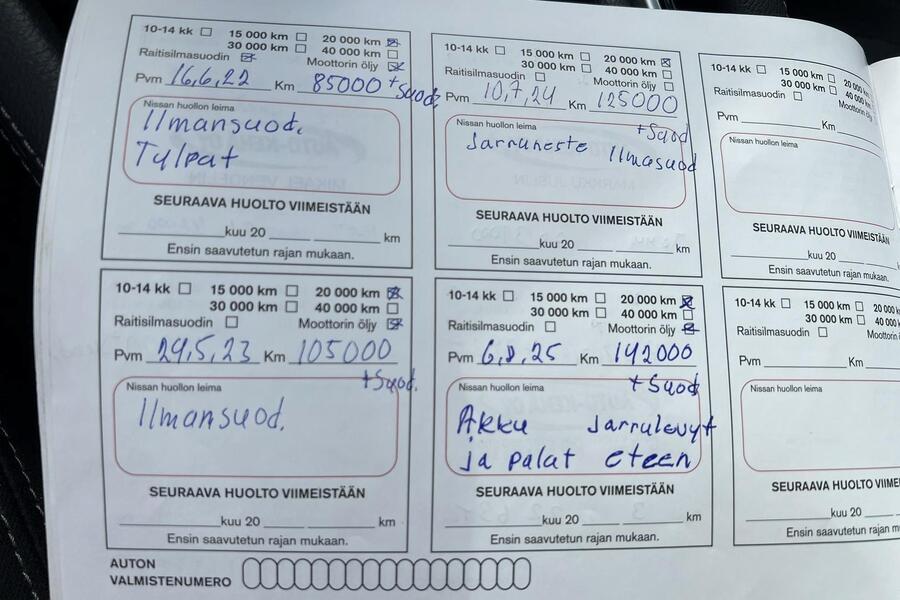 10-14 kk ☐ 15 000 km ☐ 20 000 km ☒
30 000 km ☐ 40 000 km ☐
Raitisilmasuodin ☒ Moottorin öljy ☒
Pvm 16,6,22 Km 85000 + Suod.
Nissan huollon leima
Ilmansuod.
Tulpat
SEURAAVA HUOLTO VIIMEISTÄÄN
kuu 20 km
Ensin saavutetun rajan mukaan.
10-14 kk ☐ 15 000 km ☐ 20 000 km ☒
30 000 km ☐ 40 000 km ☐
Raitisilmasuodin ☐ Moottorin öljy ☐
Pvm 10,7,24 Km 125000
+Suod
Nissan huollon leima
Jarruneste Ilmasuod
SEURAAVA HUOLTO VIIMEISTÄÄN
kuu 20 km
Ensin saavutetun rajan mukaan.
10-14 kk ☐ 15 000 km ☐ 20 000
30 000 km ☐ 40 000
Raitisilmasuodin ☐ Moottorin
Pvm Km
Nissan huollon leima
SEURAAVA HUOLTO VIIMEISTÄÄN
kuu 20
Ensin saavutetun rajan mukaan.
10-14 kk ☐ 15 000 km ☐ 20 000 km ☒
30 000 km ☐ 40 000 km ☐
Raitisilmasuodin ☐ Moottorin öljy ☒
Pvm 29,5,23 Km 105000
+Suod.
Nissan huollon leima
Ilmansuod.
SEURAAVA HUOLTO VIIMEISTÄÄN
kuu 20 km
Ensin saavutetun rajan mukaan.
10-14 kk ☐ 15 000 km ☐ 20 000 km ☒
30 000 km ☐ 40 000 km ☐
Raitisilmasuodin ☐ Moottorin öljy ☒
Pvm 6,8,25 Km 142000
+Suod
Nissan huollon leima
Akku Jarrulevyt
ja palat eteen
SEURAAVA HUOLTO VIIMEISTÄÄN
kuu 20 km
Ensin saavutetun rajan mukaan.
10-14 kk ☐ 15 000 km ☐ 20 000
30 000 km ☐ 40 00
Raitisilmasuodin ☐
Pvm Km
Nissan huollon leima
SEURAAVA HUOLTO VIIMEISTÄÄN
kuu 20
Ensin saavutetun rajan
AUTON
VALMISTENUMERO